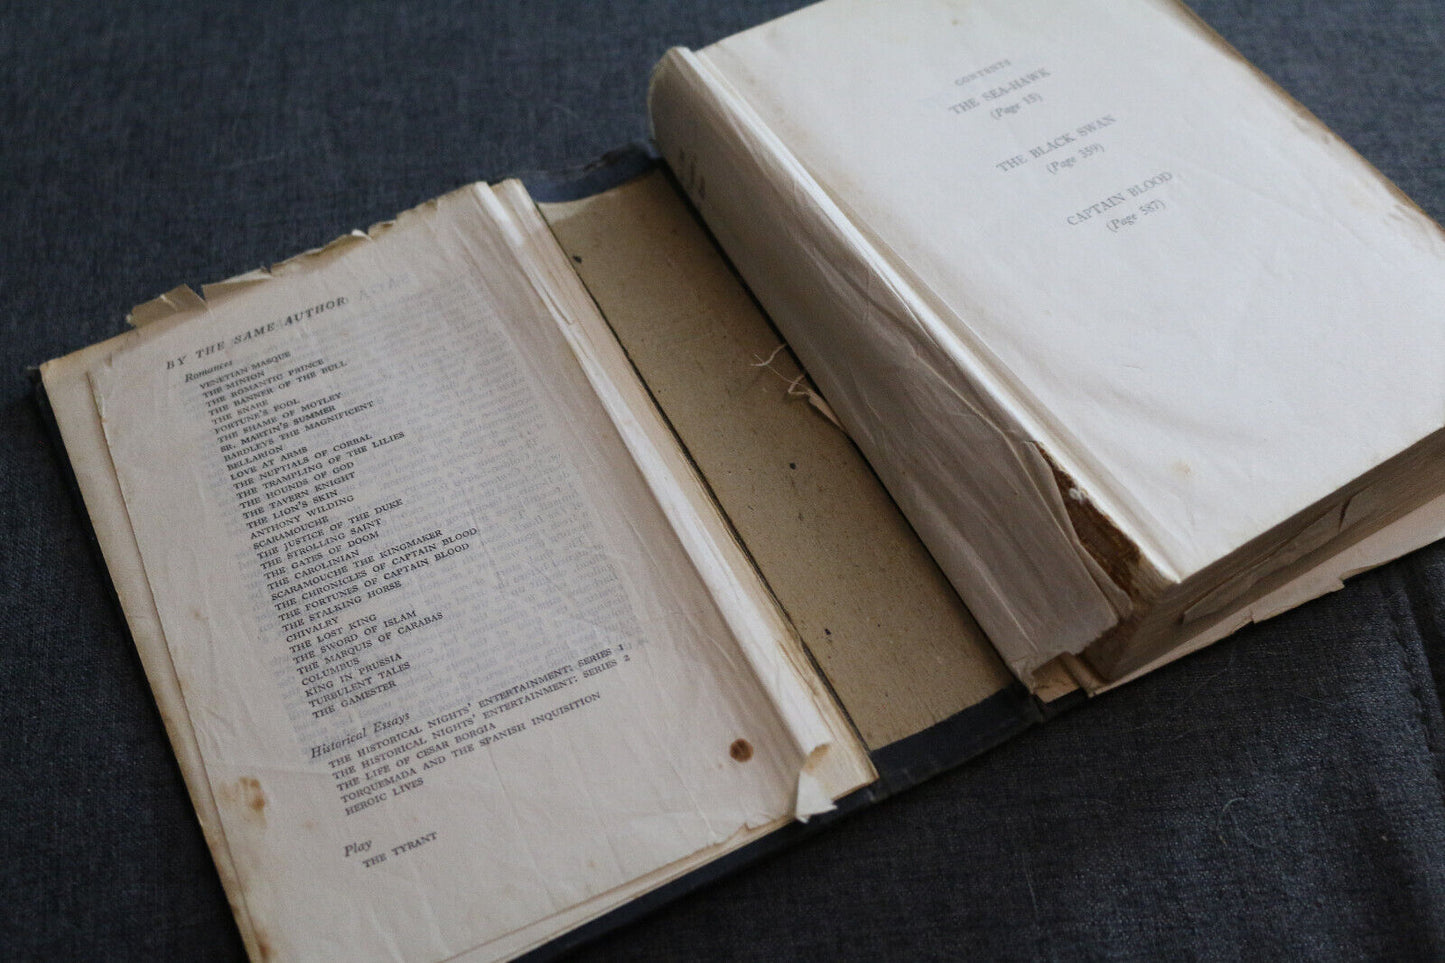 BY THE SAME AUTHOR
Romances
VENETIAN MASQUE
THE MINION
THE ROMANTIC PRINCE
THE BANNER OF THE BULL
THE SNARE
FORTUNE'S FOOL
THE SHAME OF MOTLEY
ST. MARTIN'S SUMMER
BARDLEYS THE MAGNIFICENT
BELLARION
LOVE AT ARMS
THE NUPTIALS OF CORBAL
THE TRAMPLING OF THE LILIES
THE HOUNDS OF GOD
THE TAVERN KNIGHT
THE LION'S SKIN
ANTHONY WILDING
SCARAMOUCHE
THE JUSTICE OF THE DUKE
THE STROLLING SAINT
THE GATES OF DOOM
THE CAROLINIAN
SCARAMOUCHE THE KINGMAKER
THE CHRONICLES OF CAPTAIN BLOOD
THE FORTUNES OF CAPTAIN BLOOD
THE STALKING HORSE
CHIVALRY
THE LOST KING
THE SWORD OF ISLAM
THE MARQUIS OF CARABAS
COLUMBUS
KING IN PRUSSIA
TURBULENT TALES
THE GAMESTER
Historical Essays
THE HISTORICAL NIGHTS' ENTERTAINMENT: SERIES 1
THE HISTORICAL NIGHTS' ENTERTAINMENT: SERIES 2
THE LIFE OF CESAR BORGIA
TORQUEMADA AND THE SPANISH INQUISITION
HEROIC LIVES
Play
THE TYRANT
CONTENTS
THE SEA-HAWK
(Page 15)
THE BLACK SWAN
(Page 359)
CAPTAIN BLOOD
(Page 587)